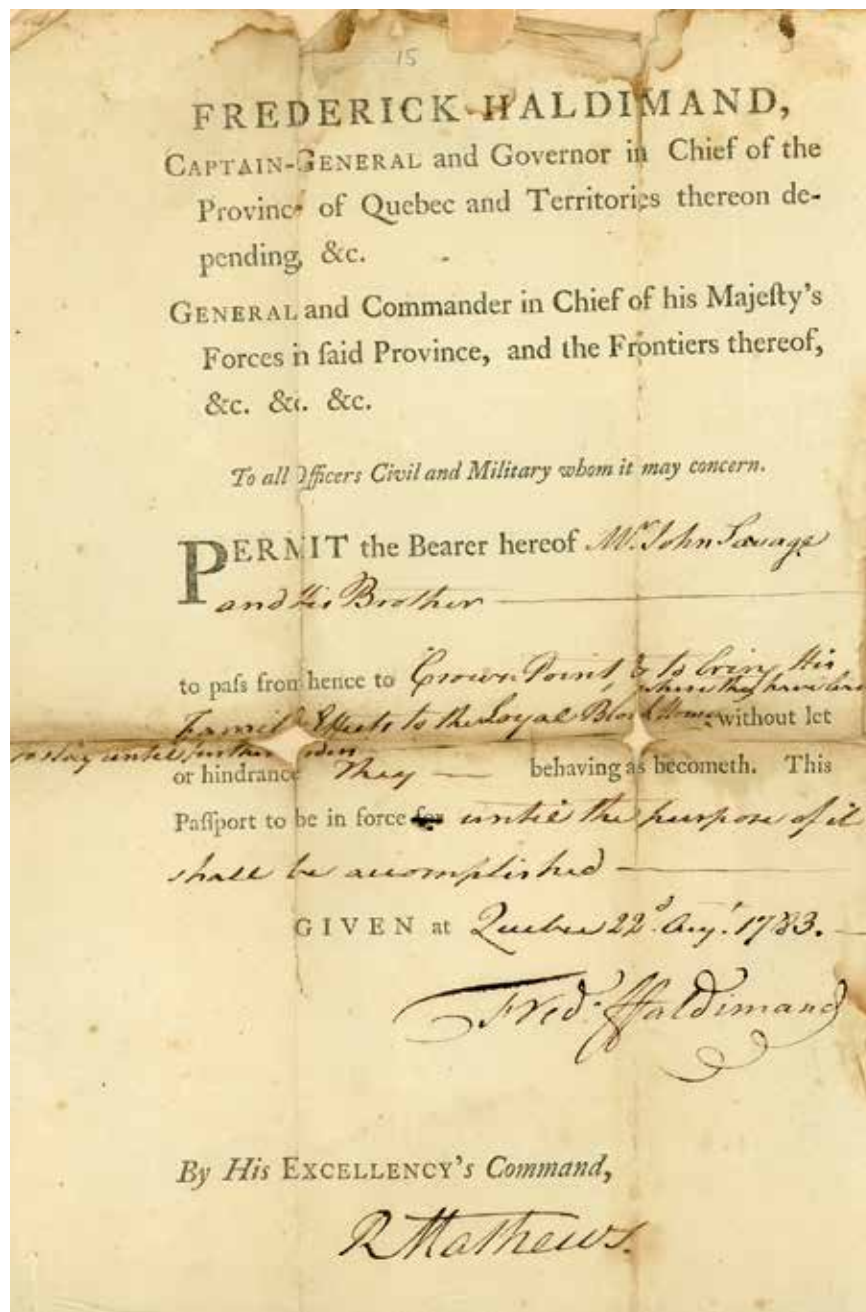 15
FREDERICK HALDIMAND,
CAPTAIN-GENERAL and Governor in Chief of the
Province of Quebec and Territories thereon de-
pending, &c.
GENERAL and Commander in Chief of his Majeſty's
Forces in ſaid Province, and the Frontiers thereof,
&c. &c. &c.
To all Officers Civil and Military whom it may concern.
PERMIT the Bearer hereof Mr. John Savage
and His Brother
to paſs from hence to Crown Point & to bring His
where they have leave
Family & Effects to the Loyal Block House without let
to stay until further orders
or hindrance They behaving as becometh. This
Paſſport to be in force for until the purpose of it
shall be accomplished
GIVEN at Quebec 22d. Augt. 1783.
Fred: Haldimand
By His EXCELLENCY's Command,
R Mathews.